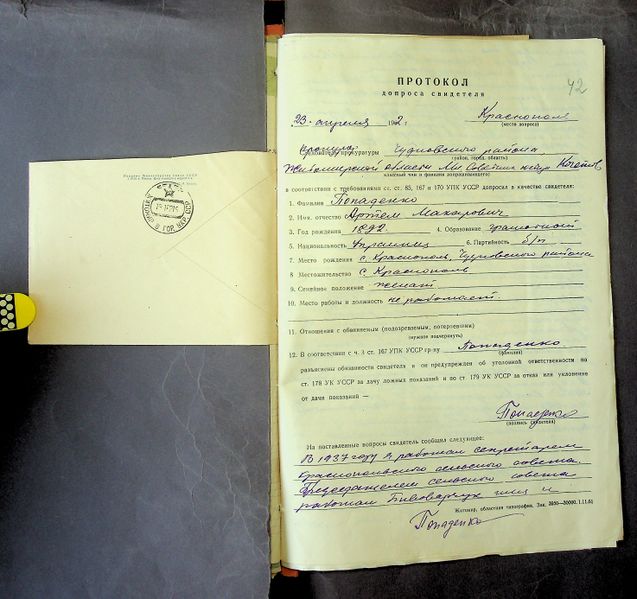 42
ПРОТОКОЛ
допроса свидетеля
23 апреля 1962 г.
Краснополь
(место допроса)
прокуратуры Чудновского района
(район, город, область)
Житомирской области Мл Советник юстр
(классный чин и фамилия допрашивающего)
в соответствии с требованиями ст. ст. 85, 167 и 170 УПК УССР допросил в качестве свидетеля:
1. Фамилия Попаденко
2. Имя, отчество Артем Макарович
3. Год рождения 1892 4. Образование грамотный
5. Национальность Украинец 6. Партийность б/п
7. Место рождения с. Краснополь, Чудновского района
8 Местожительство с Краснополь
9. Семейное положение женат
10. Место работы и должность не работает.
11. Отношения с обвиняемым (подозреваемым, потерпевшим)
(нужное подчеркнуть)
12. В соответствии с ч. 3 ст. 167 УПК УССР гр-ну Попаденко
(фамилия)
разъяснены обязанности свидетеля и он предупрежден об уголовной ответственности по
ст. 178 УК УССР за дачу ложных показаний и по ст. 179 УК УССР за отказ или уклонение
от дачи показаний —
Попаденко
(подпись свидетеля)
На поставленные вопросы свидетель сообщил следующее:
В 1937 году я работал секретарем
Краснопольского сельского совета.
Председателем сельского совета
работал Пивоварчук и
Житомир, областная типография, Зак. 3930—30000. 1.11.61
Попаденко